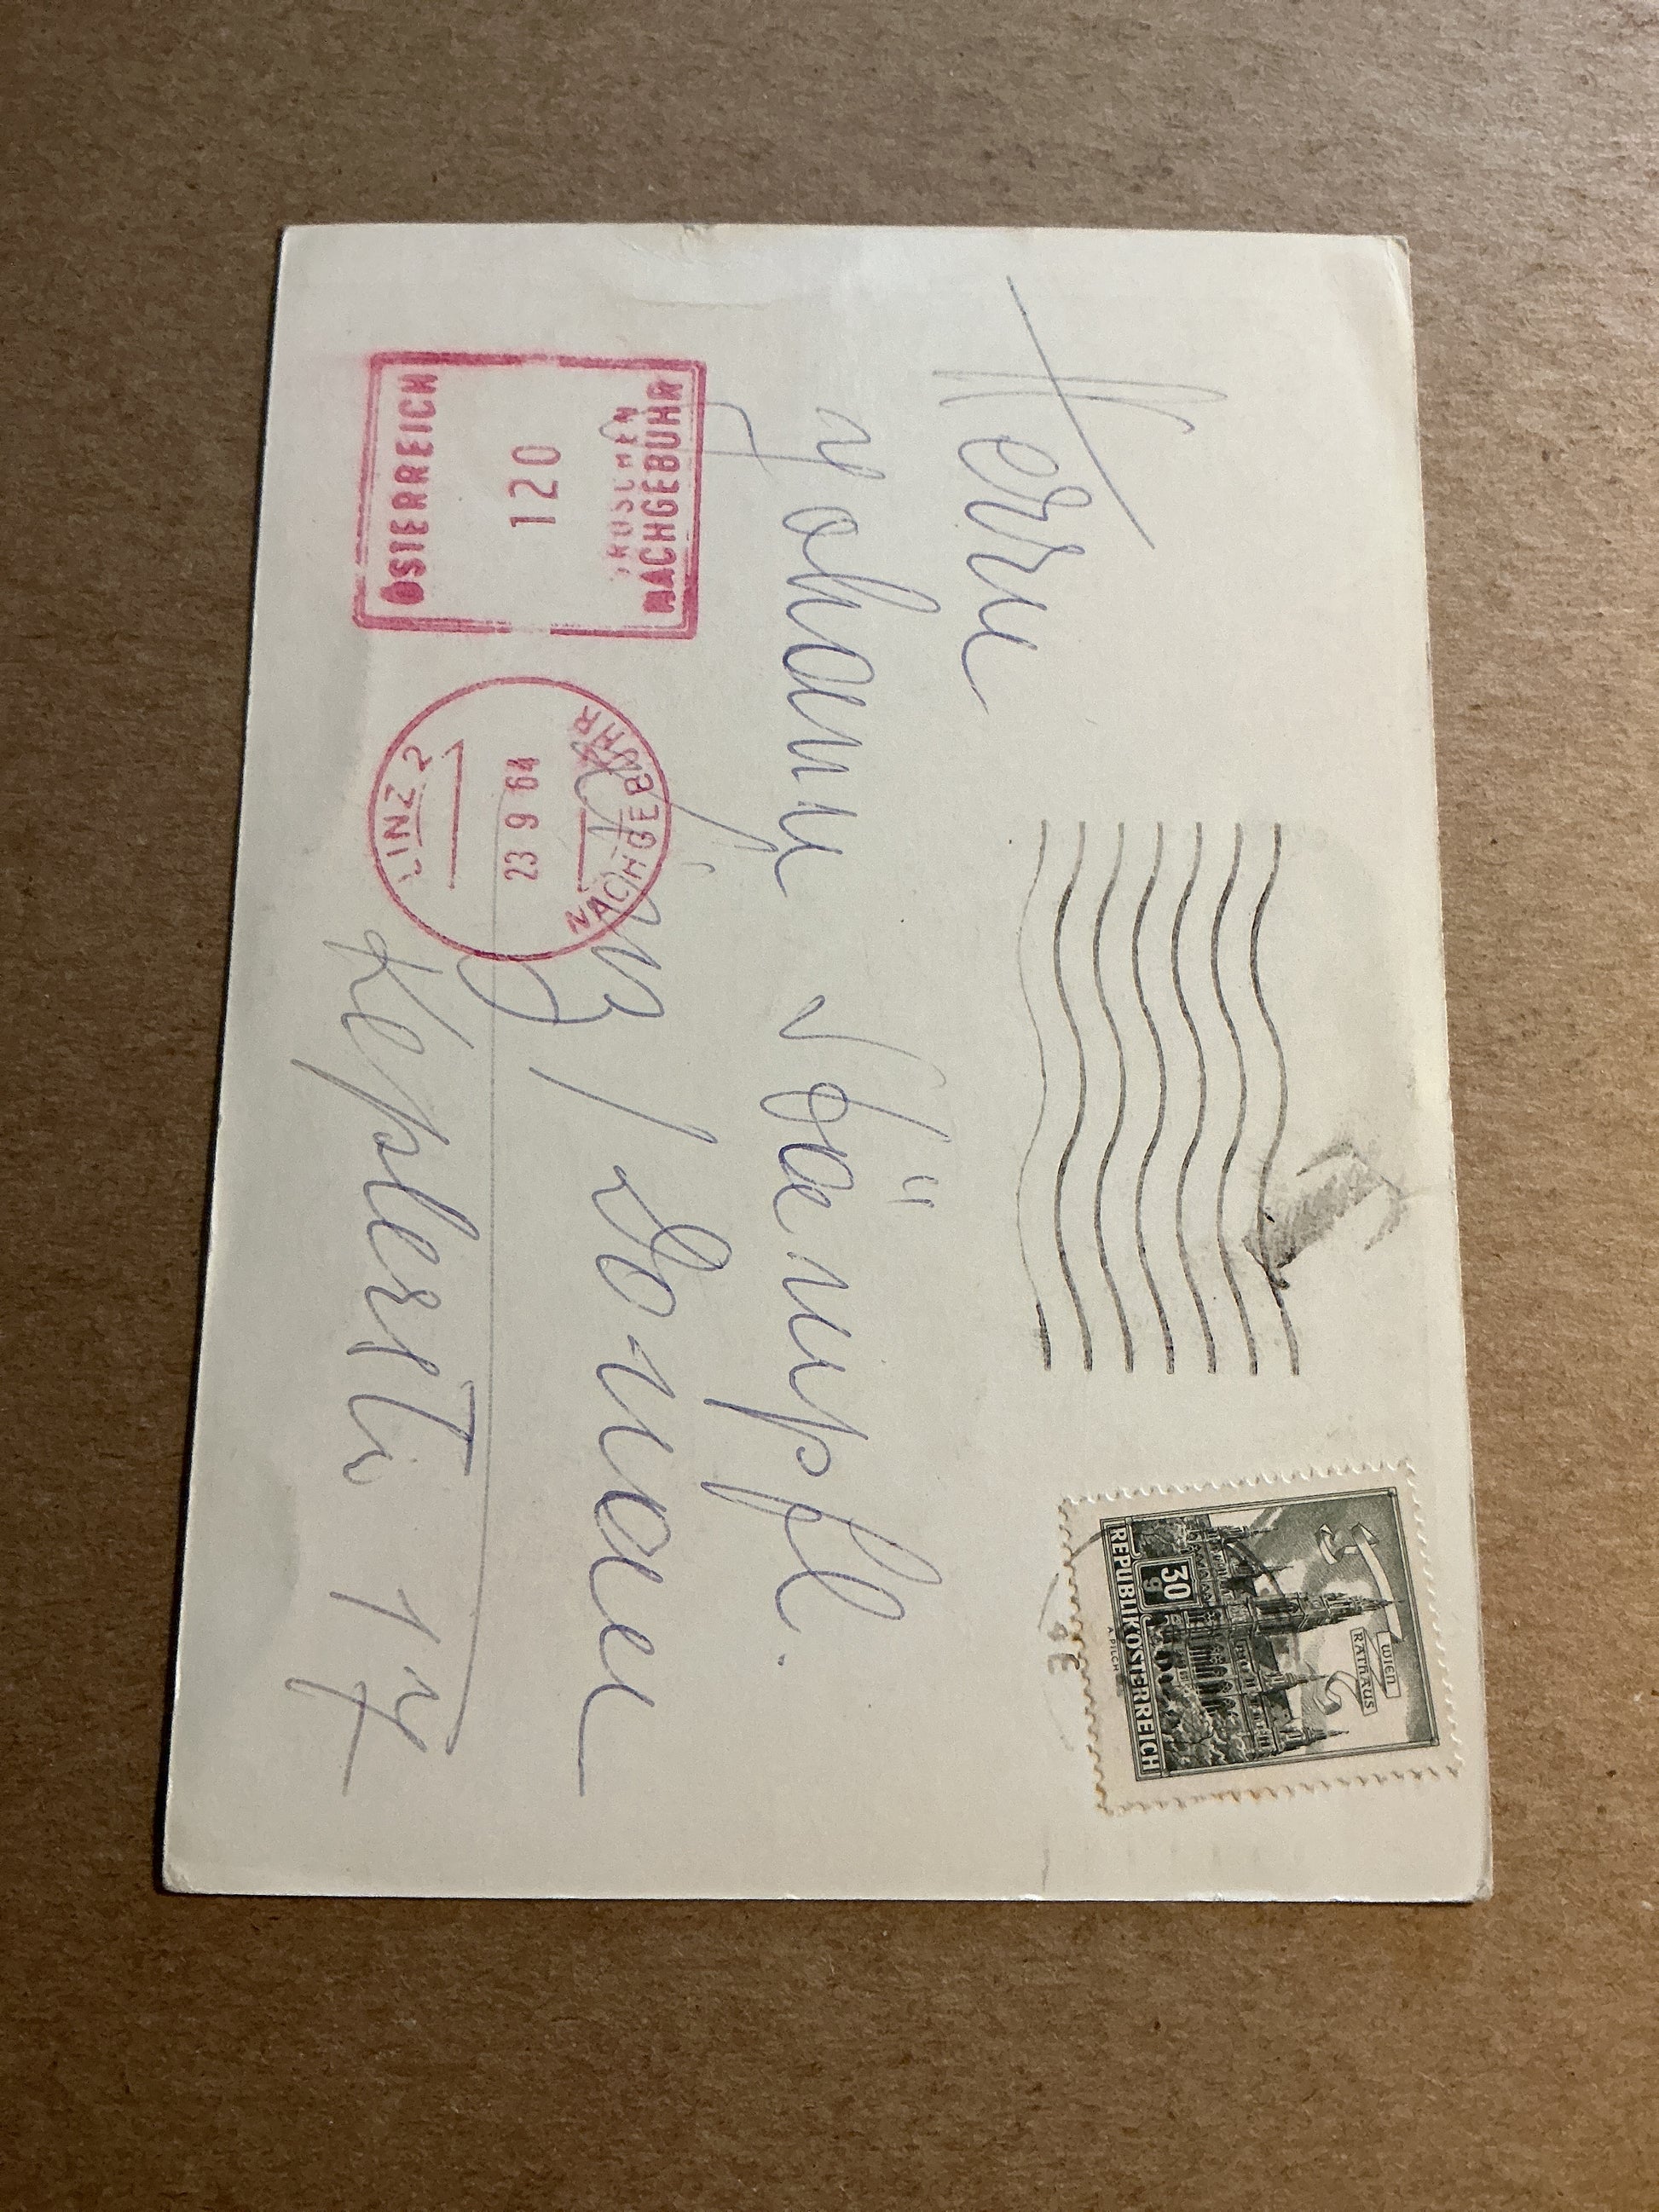 WIEN
RATHAUS
30
g
REPUBLIK ÖSTERREICH
A. PILCH
Herrn
Johann
Linz / Donau
Keplerstr. 14
NACHGEBÜHR
GROSCHEN
120
ÖSTERREICH
NACHGEBÜHR
23 9 64
LINZ 2